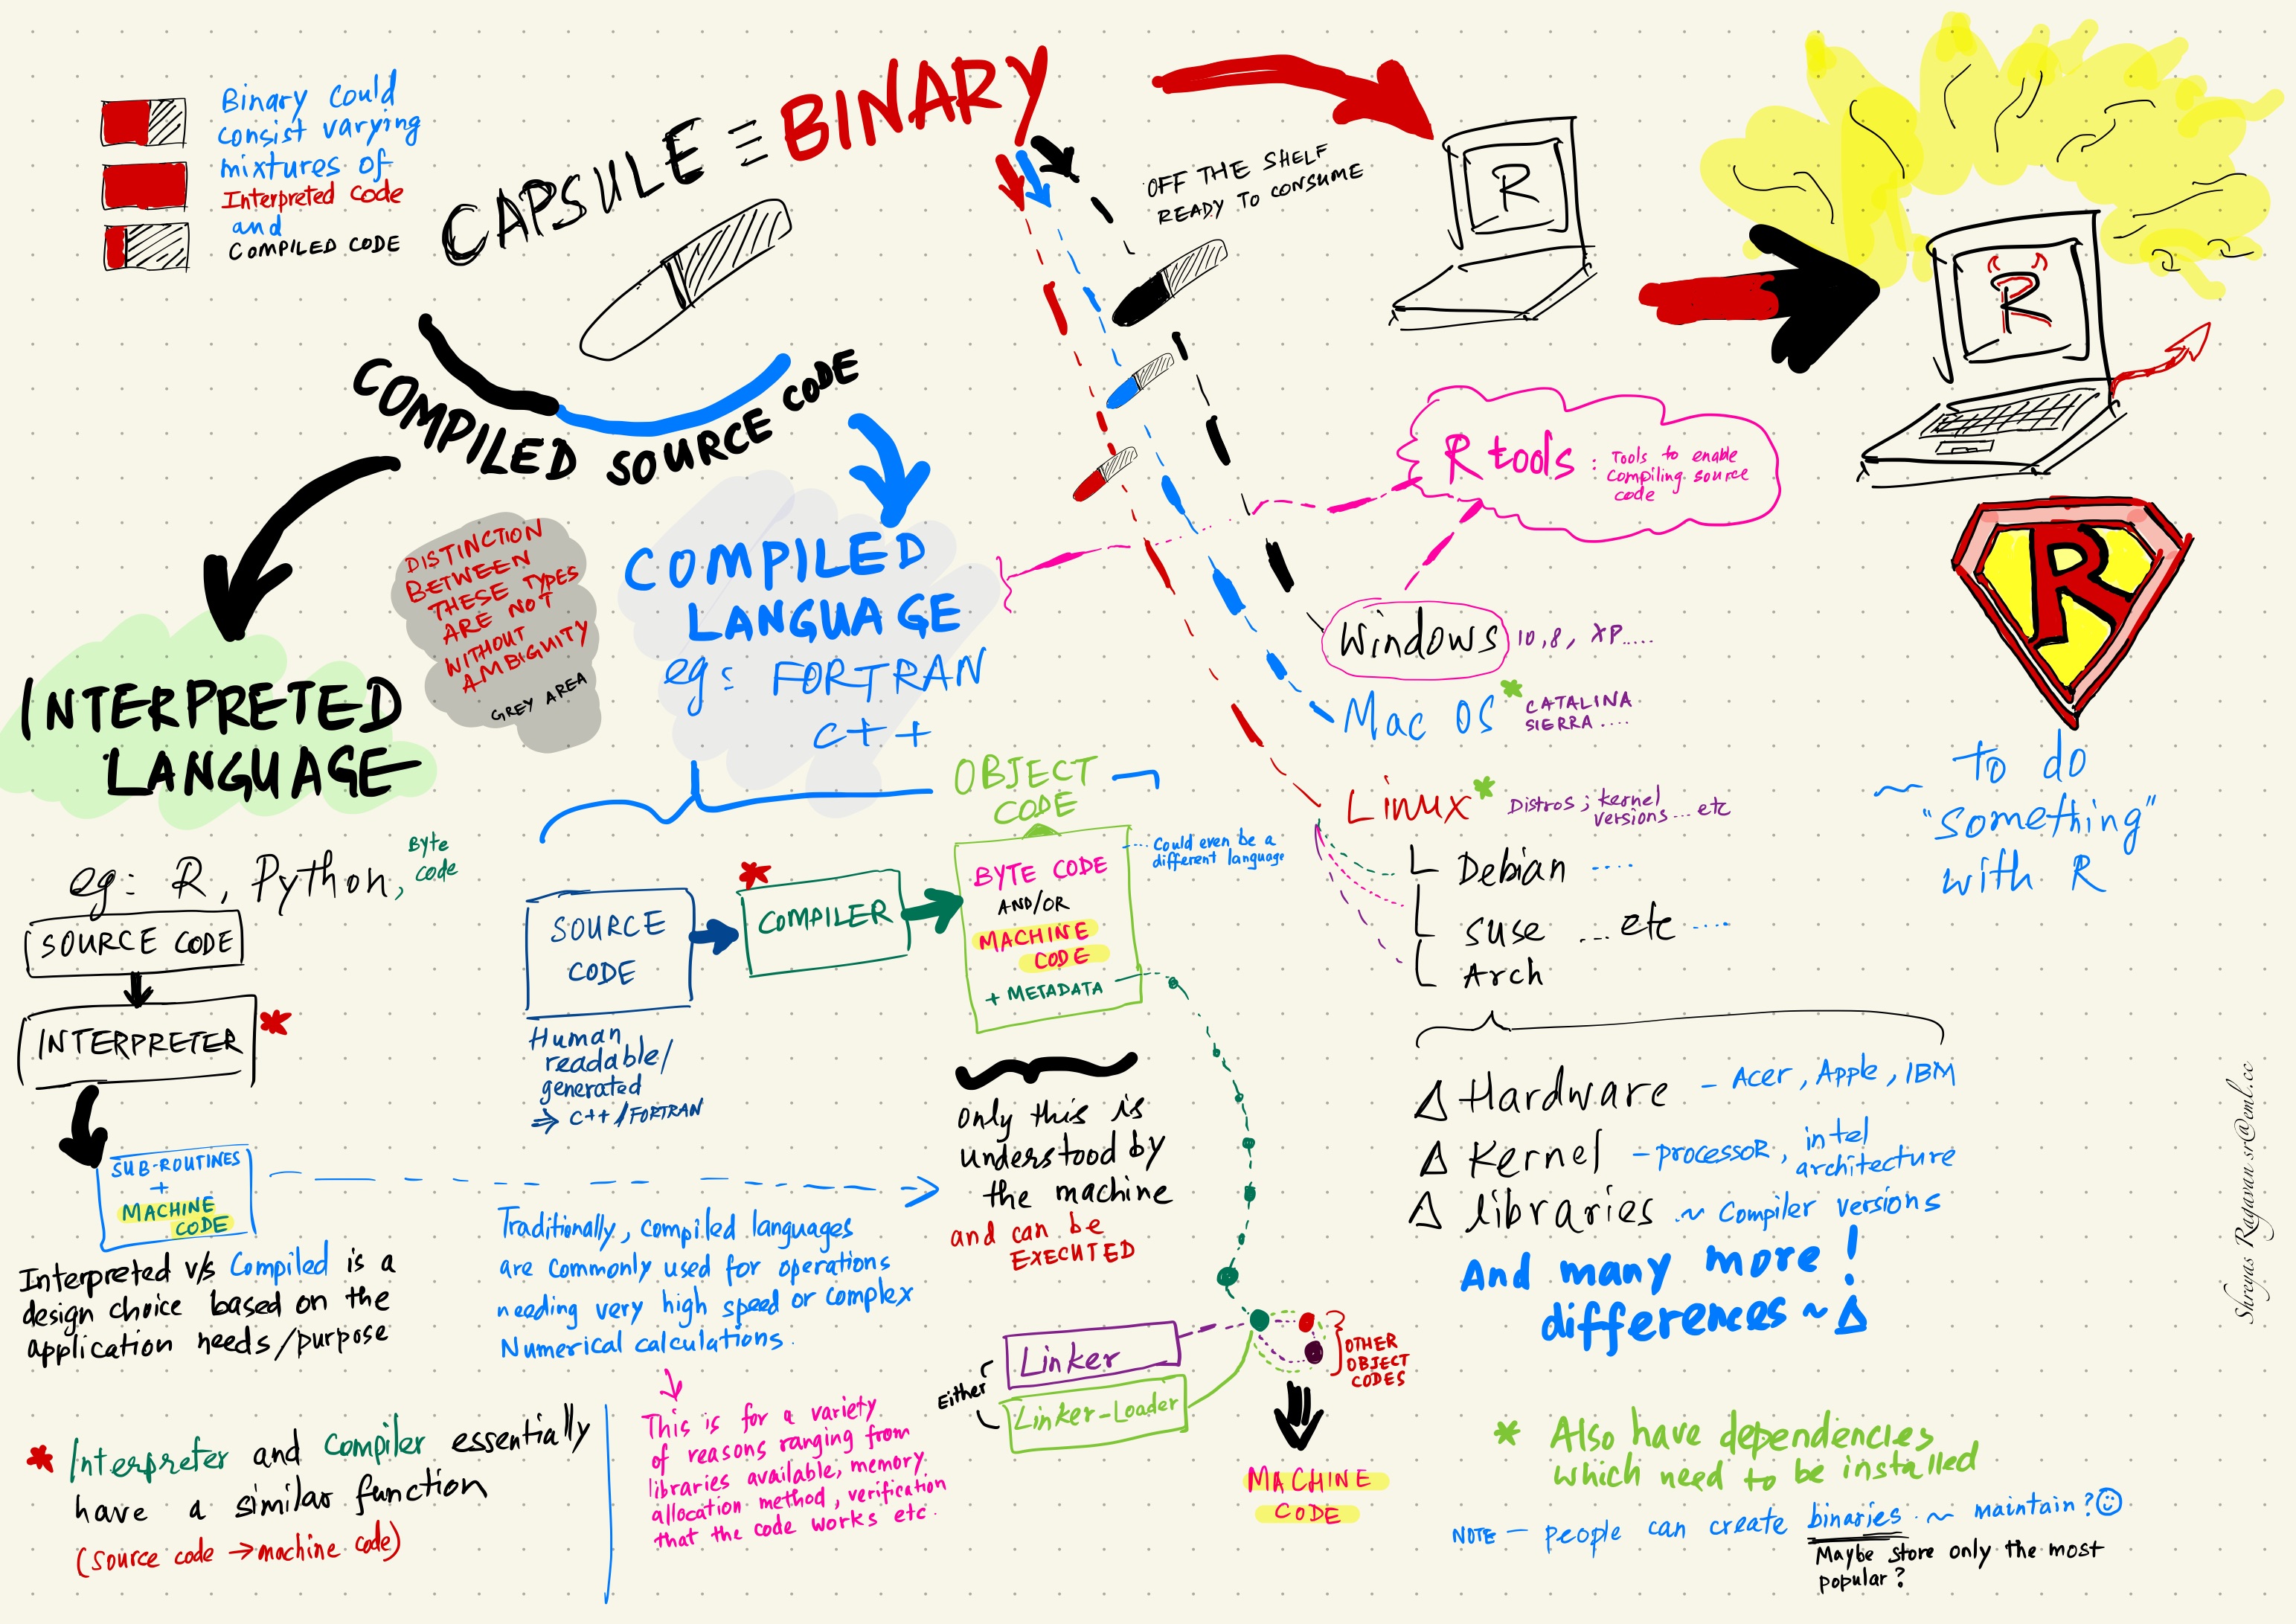 Binary could
consist varying
mixtures of
Interpreted code
and
COMPILED CODE
CAPSULE ≡ BINARY
OFF THE SHELF
READY TO CONSUME
R
R
COMPILED SOURCE CODE
R tools : Tools to enable
compiling source
code
DISTINCTION
BETWEEN
THESE TYPES
ARE NOT
WITHOUT
AMBIGUITY
GREY AREA
COMPILED
LANGUAGE
eg: FORTRAN
C++
INTERPRETED
LANGUAGE
eg: R, Python, Byte
code
SOURCE CODE
INTERPRETER *
SUB-ROUTINES
+
MACHINE
CODE
Interpreted v/s Compiled is a
design choice based on the
application needs/purpose
* Interpreter and Compiler essentially
have a similar function
(source code → machine code)
SOURCE
CODE
Human
readable/
generated
⇒ C++ / FORTRAN
*
COMPILER
OBJECT
CODE
BYTE CODE
AND/OR
MACHINE
CODE
+ METADATA
Could even be a
different language
Only this is
understood by
the machine
and can be
EXECUTED
Traditionally, compiled languages
are commonly used for operations
needing very high speed or complex
Numerical calculations.
This is for a variety
of reasons ranging from
libraries available, memory
allocation method, verification
that the code works etc.
Either
Linker
Linker-Loader
OTHER
OBJECT
CODES
MACHINE
CODE
Windows 10, 8, XP.....
Mac OS * CATALINA
SIERRA ....
Linux * Distros ; kernel
versions ... etc
Debian ....
suse ... etc ....
Arch
Δ Hardware - Acer, Apple, IBM
Δ Kernel - processoR, intel
architecture
Δ libraries ~ Compiler versions
And many more!
differences ~ Δ
* Also have dependencies
which need to be installed
NOTE — people can create binaries ~ maintain? ☺
Maybe store only the most
popular?
R
~ to do
"something"
with R
Shreyas Ragavan sr@eml.cc